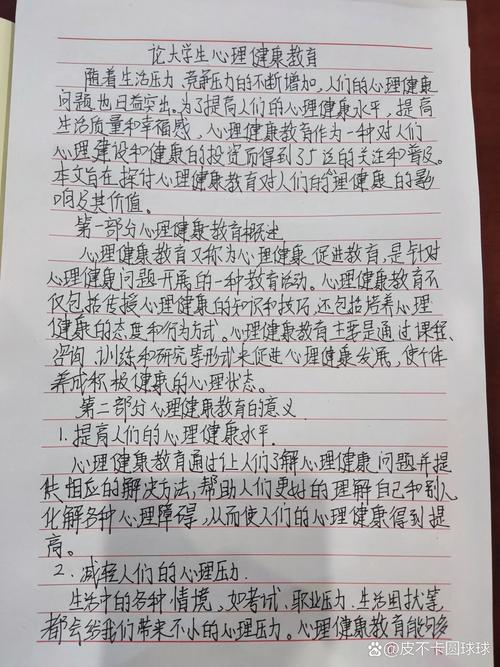 论大学生心理健康教育
随着生活压力、竞争压力的不断增加,人们的心理健康
问题也日益突出。为了提高人们的心理健康水平,提高
生活质量和幸福感,心理健康教育作为一种对人们
心理建设和健康的投资而得到了广泛的关注和普及。
本文旨在探讨心理健康教育对人们的心理健康的影
响与其价值。
第一部分心理健康教育概述
心理健康教育又称为心理健康促进教育,是针对
心理健康问题开展的一种教育活动。心理健康教育不
仅包括传授心理健康的知识和技巧,还包括培养心理
健康的态度和行为方式。心理健康教育主要是通过课程、
咨询、训练和研究等形式来促进心理健康发展,使个体
养成积极健康的心理状态。
第二部分心理健康教育的意义
1.提高人们的心理健康水平.
心理健康教育通过让人们了解心理健康问题并提
供相应的解决方法,帮助人们更好的理解自己和别人
化解各种心理障碍,从而使人们的心理健康得到提
高。
2.减轻人们的心理压力.
生活中的各种情境,如考试、职业压力、生活困扰等
都会给我们带来不小的心理压力。心理健康教育能够
@皮不卡圆球球